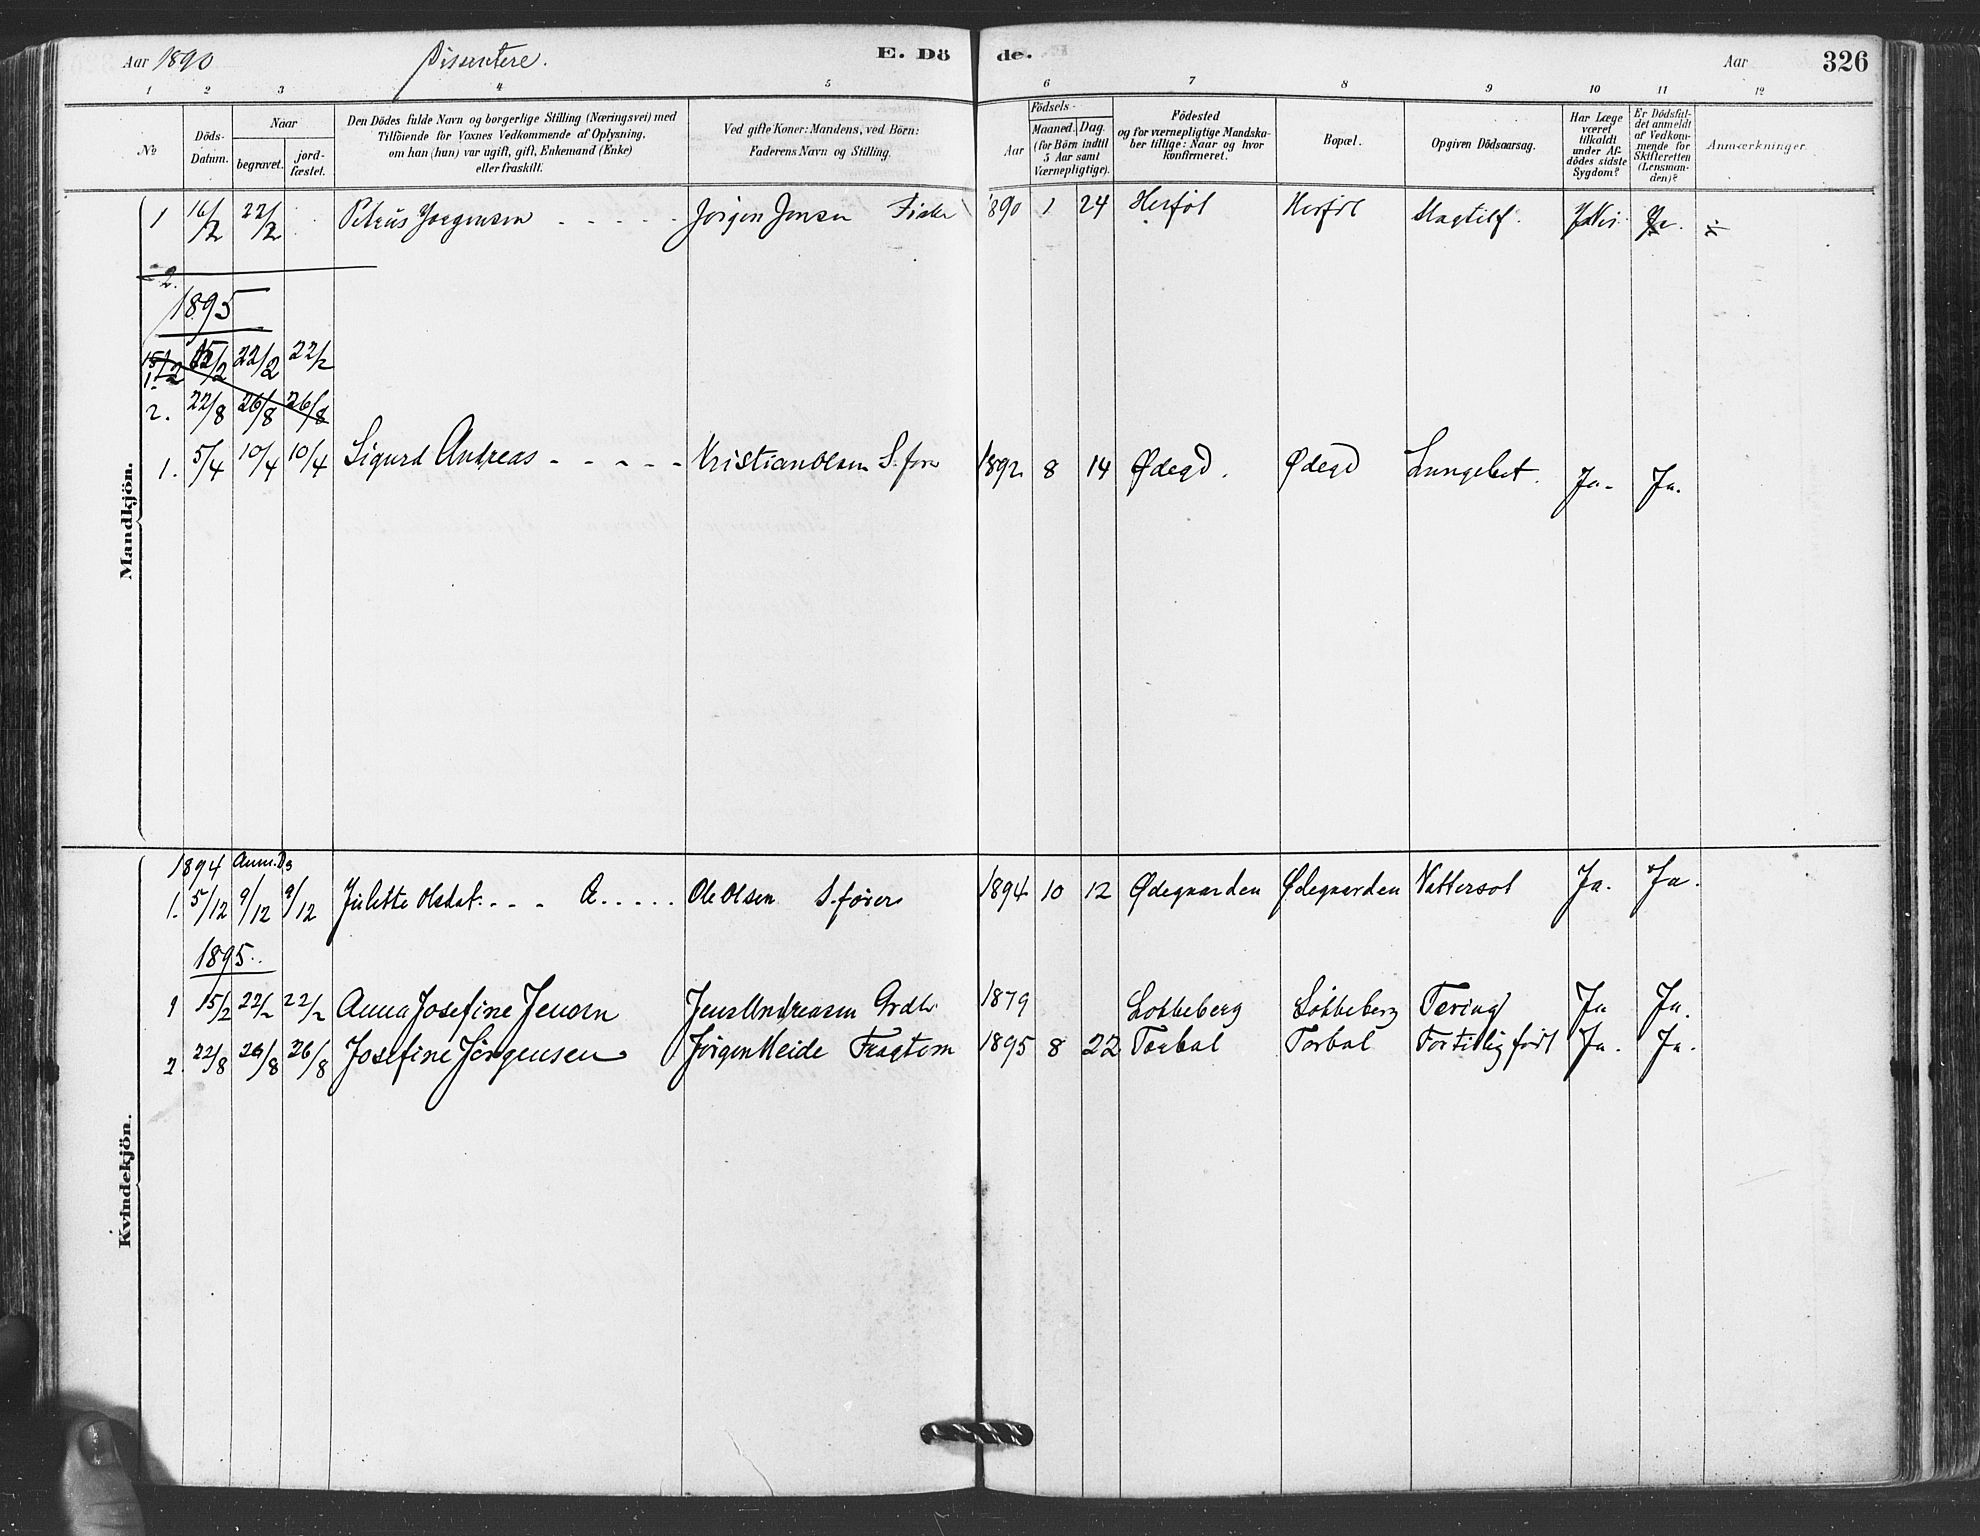 Aar 1890 Dissentere. E. Dö de. Aar 326
1 2 3 4 5 6 7 8 9 10 11 12
No
Döds-Datum.
Naar
begravet.
jord-fæstet.
Den Dödes fulde Navn og borgerlige Stilling (Næringsvei) med
Tilföiende for Voxnes Vedkommende af Oplysning,
om han (hun) var ugift, gift, Enkemand (Enke)
eller fraskilt.
Ved gifte Koner: Mandens, ved Börn:
Faderens Navn og Stilling.
Födsels-
Aar
Maaned. Dag.
(for Börn indtil
5 Aar samt
Værnepligtige).
Födested
og for værnepligtige Mandska-
ber tillige: Naar og hvor
konfirmeret.
Bopæl.
Opgiven Dödsaarsag.
Har Læge
været
tilkaldt
under Af-
dödes sidste
Sygdom?
Er Dödsfal-
det anmeldt
af Vedkom-
mende for
Skifteretten
(Lensman-
den)?
Anmærkninger.
Mandkjön.
1 16/2 22/2 Petrus Jørgensen - - - - - Jørgen Jensen Fisker 1890 1 24 Herføl Herføl Ja.
2.
1895
1. 15/2 22/2 22/2
2. 22/8 26/8 26/8
1. 5/4 10/4 10/4 Sigurd Andreas - - - - - Kristian Olsen S.fører 1892 8 14 Ødegd. Ødegd Lungebet. Ja. Ja.
Kvindekjön.
1894
1. 5/12 9/12 9/12 Julette Olsdat. - - - - - Ole Olsen S.fører 1894 10 12 Ødegaarden Ødegaarden Vattersot Ja. Ja.
1895.
1 15/2 22/2 22/2 Anna Josefine Jensen Jens Andreasen 1879 Løkkeberg Løkkeberg Tæring Ja Ja.
2. 22/8 26/8 26/8 Josefine Jörgensen Jørgen Heide 1895 8 22 Torbal Torbal For tidlig født Ja. Ja.